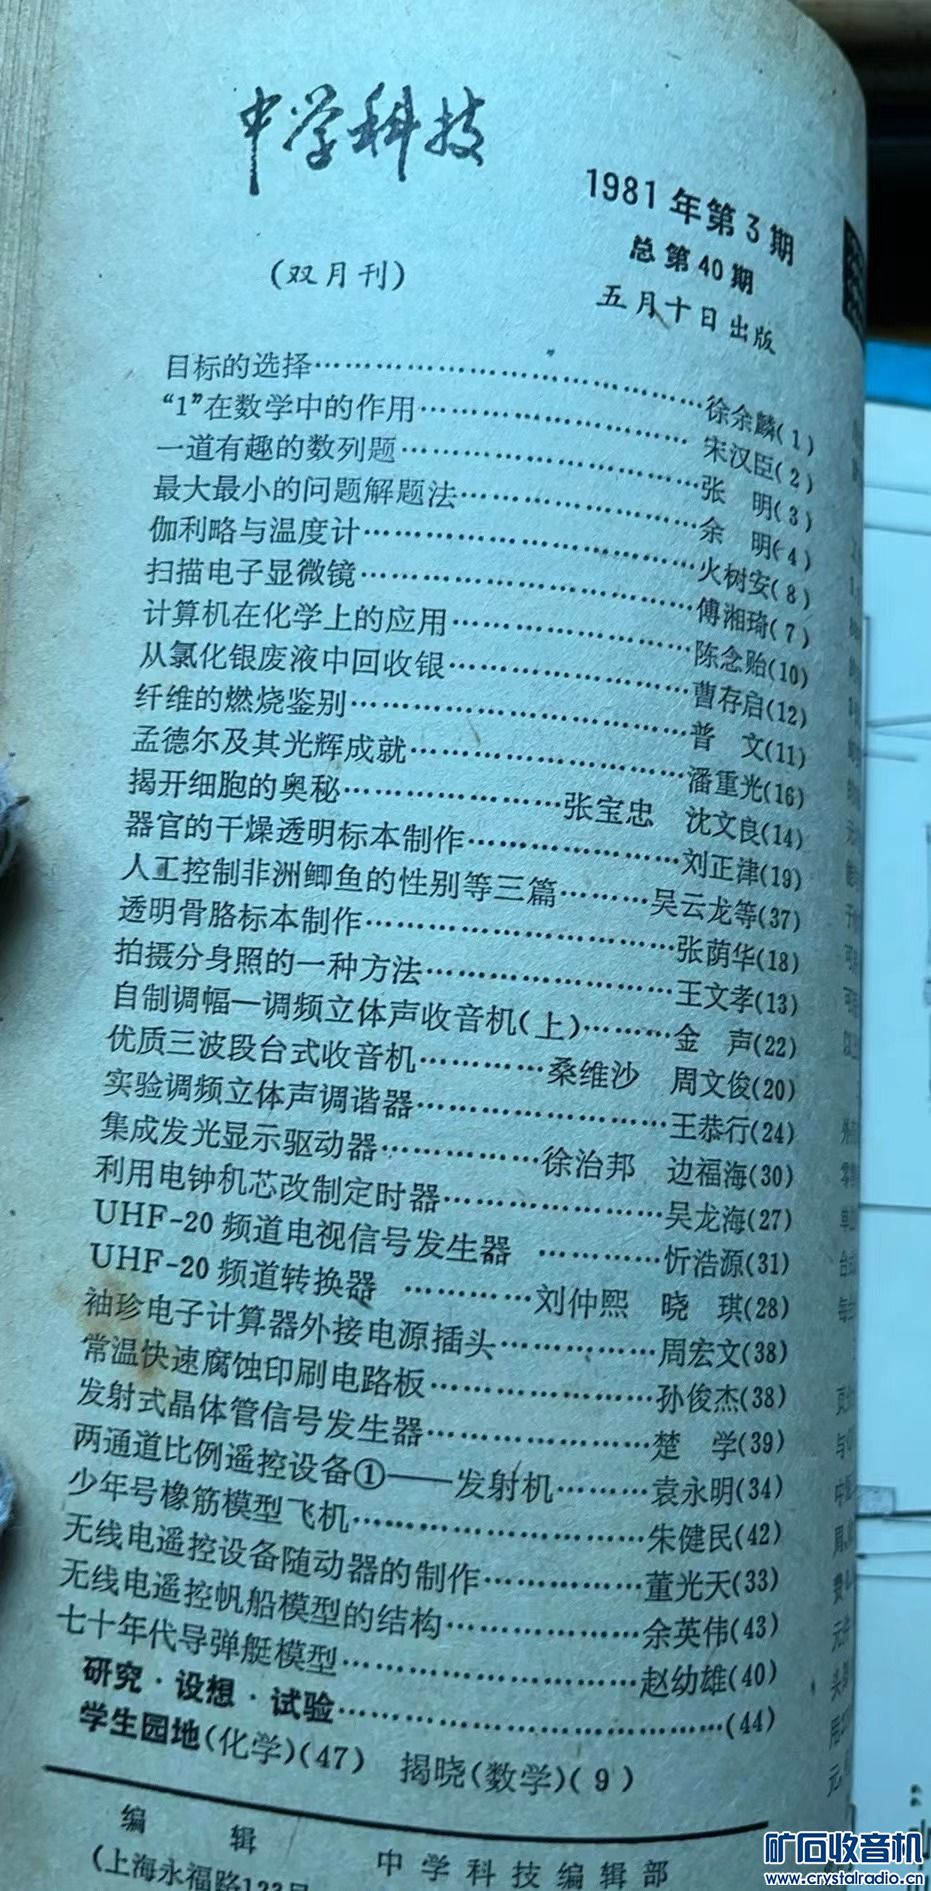 中学科技
1981年第3期
总第40期
(双月刊)
五月十日出版
目标的选择……………………………徐余麟(1)
“1”在数学中的作用……………………宋汉臣(2)
一道有趣的数列题………………………张　明(3)
最大最小的问题解题法…………………余　明(4)
伽利略与温度计…………………………火树安(8)
扫描电子显微镜…………………………傅湘琦(7)
计算机在化学上的应用…………………陈念贻(10)
从氯化银废液中回收银…………………曹存启(12)
纤维的燃烧鉴别…………………………普　文(11)
孟德尔及其光辉成就……………………潘重光(16)
揭开细胞的奥秘…………………张宝忠　沈文良(14)
器官的干燥透明标本制作………………刘正津(19)
人工控制非洲鲫鱼的性别等三篇………吴云龙等(37)
透明骨胳标本制作………………………张荫华(18)
拍摄分身照的一种方法…………………王文孝(13)
自制调幅—调频立体声收音机(上)………金　声(22)
优质三波段台式收音机…………桑维沙　周文俊(20)
实验调频立体声调谐器…………………王恭行(24)
集成发光显示驱动器……………徐治邦　边福海(30)
利用电钟机芯改制定时器………………吴龙海(27)
UHF-20频道电视信号发生器 …………忻浩源(31)
UHF-20频道转换器 …………刘仲熙　晓　琪(28)
袖珍电子计算器外接电源插头…………周宏文(38)
常温快速腐蚀印刷电路板………………孙俊杰(38)
发射式晶体管信号发生器………………楚　学(39)
两通道比例遥控设备①——发射机………袁永明(34)
少年号橡筋模型飞机……………………朱健民(42)
无线电遥控设备随动器的制作…………董光天(33)
无线电遥控帆船模型的结构……………余英伟(43)
七十年代导弹艇模型……………………赵幼雄(40)
研究·设想·试验…………………………(44)
学生园地(化学)(47)　揭晓(数学)(9)
编　辑　中学科技编辑部
(上海永福路123号
矿石收音机
www.crystalradio.cn